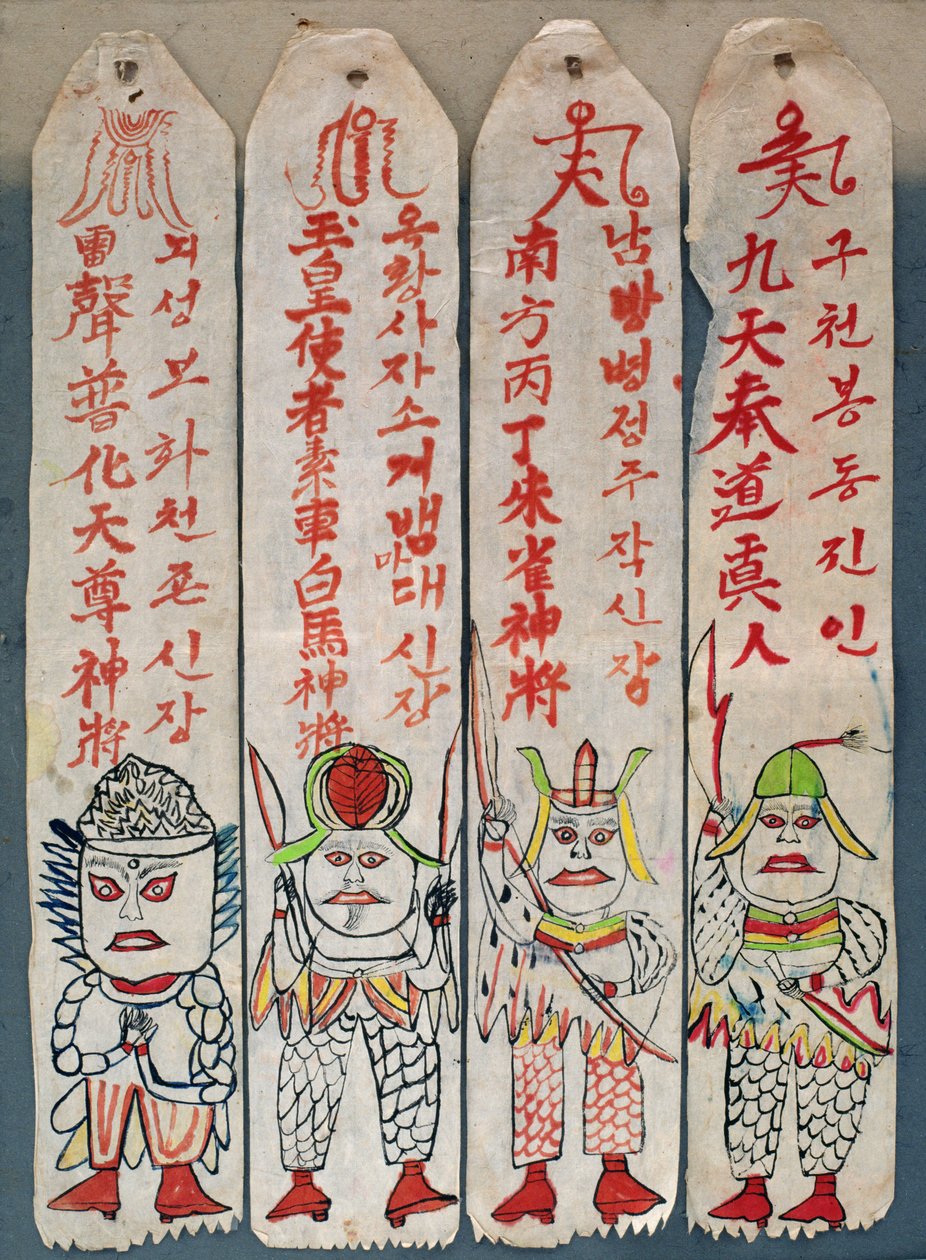 구천봉동진인
九天奉道眞人
남방병정주작신장
南方丙丁朱雀神將
옥황사자소거뱅마대신장
玉皇使者素車白馬神將
뇌성보화천존신장
雷聲普化天尊神將